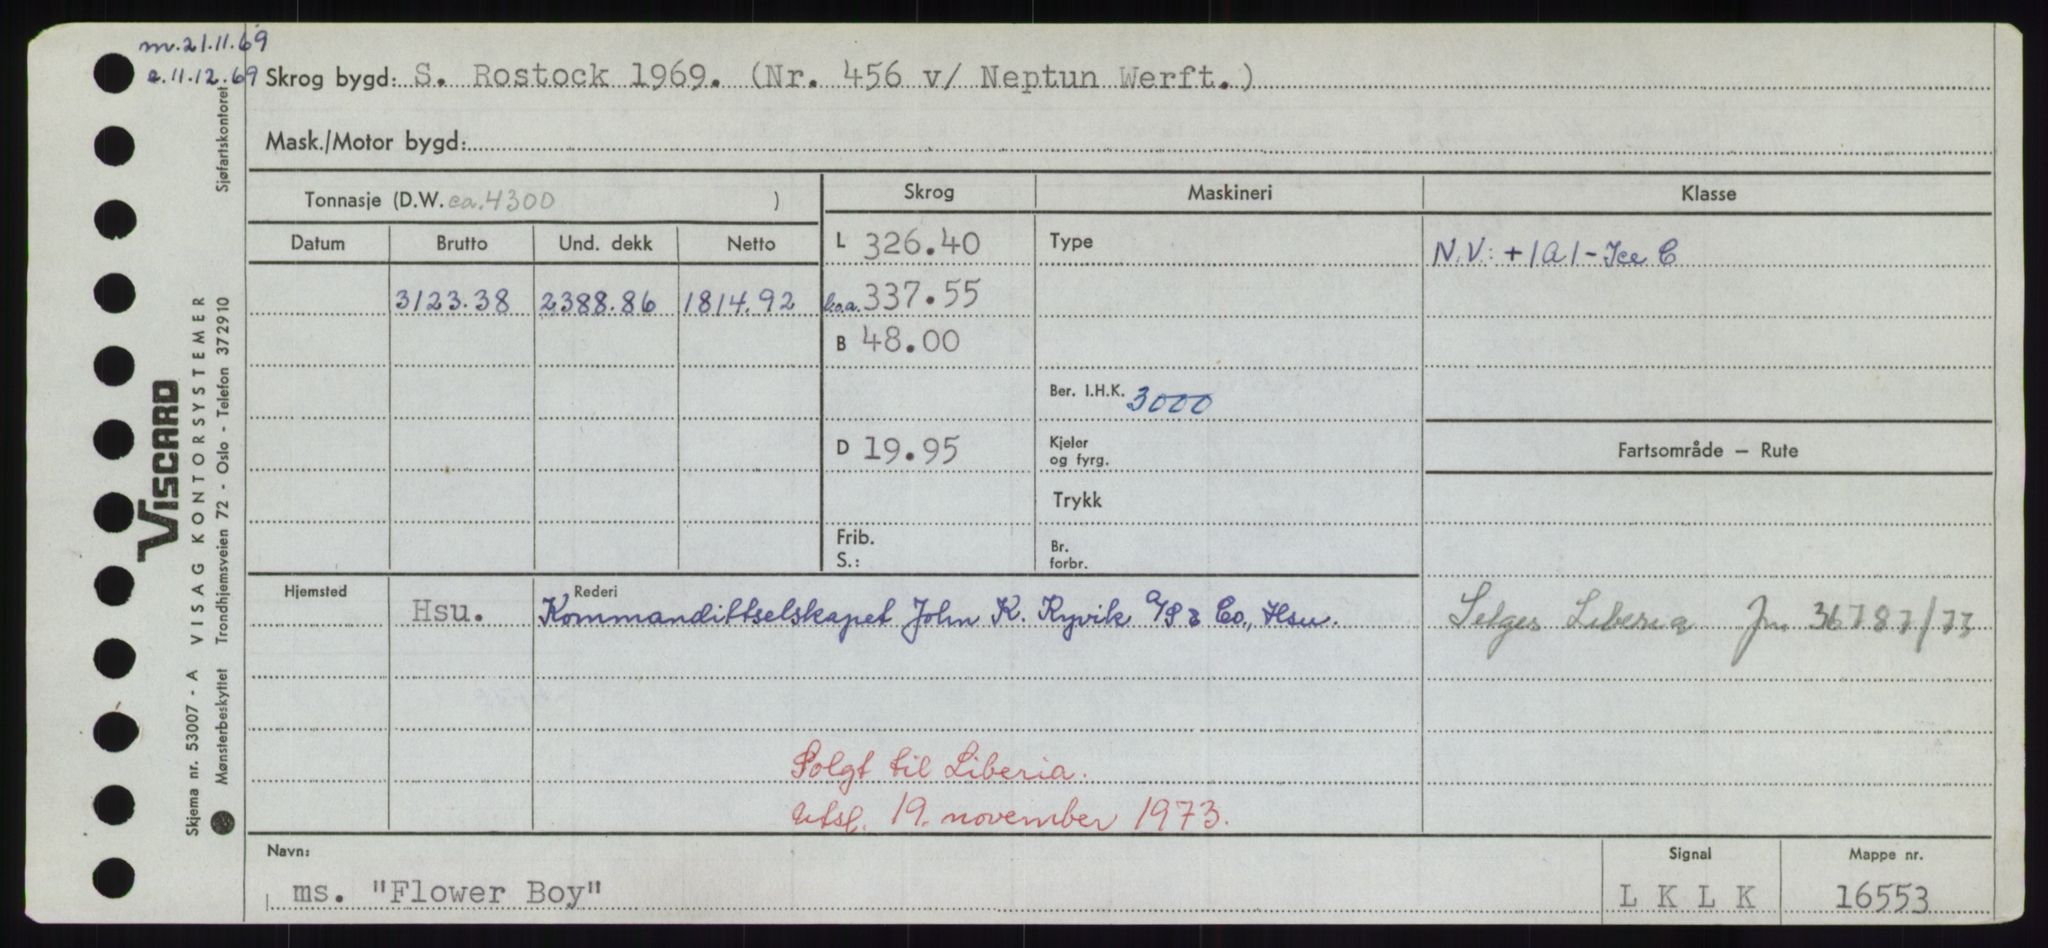 m. 21.11.69
e. 11.12.69
Skrog bygd: S. Rostock 1969. (Nr. 456 v/ Neptun Werft.)
Mask./Motor bygd:
Tonnasje (D.W. ca. 4300 )
Skrog
Maskineri
Klasse
Datum
Brutto
Und. dekk
Netto
3123.38 2388.86 1814.92
L 326.40
b.o.a. 337.55
B 48.00
D 19.95
Frib.
S.:
Type
Ber. I.H.K. 3000
Kjeler
og fyrg.
Trykk
Br.
forbr.
N.V: +1A1-Ice C
Fartsområde – Rute
Selges Liberia Jnr. 36787/73
Hjemsted
Hsu.
Rederi
Kommandittselskapet John K. Ryvik A/S & Co., Hsu.
Solgt til Liberia.
Utsl. 19. november 1973.
Navn:
ms. "Flower Boy"
Signal
LKLK
Mappe nr.
16553
VISCARD
VISAG KONTORSYSTEMER
Skjema nr. 53007 - A
Mønsterbeskyttet
Trondhjemsveien 72 - Oslo - Telefon 372910
Sjøfartskontoret